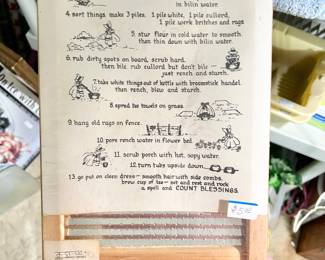 in bilin water.
4. sort things make 3 piles. 1 pile white, 1 pile cullord,
1 pile werk britches and rags
5. stur flour in cold water to smooth
then thin down with bilin water.
6. rub dirty spots on board, scrub hard.
then bile rub cullord but don't bile —
just rench and starch.
7. take white things out of kettle with broomstick handel.
then rench, blew and starch.
8. spred tee towels on grass.
9. hang old rags on fence.
10. pore rench water in flower bed.
11. scrub porch with hot, sopy water.
12. turn tubs upside down.
13. go put on cleen dress — smooth hair with side combs.
brew cup of tee — set and rest and rock
a spell and COUNT BLESSINGS.
$5.00